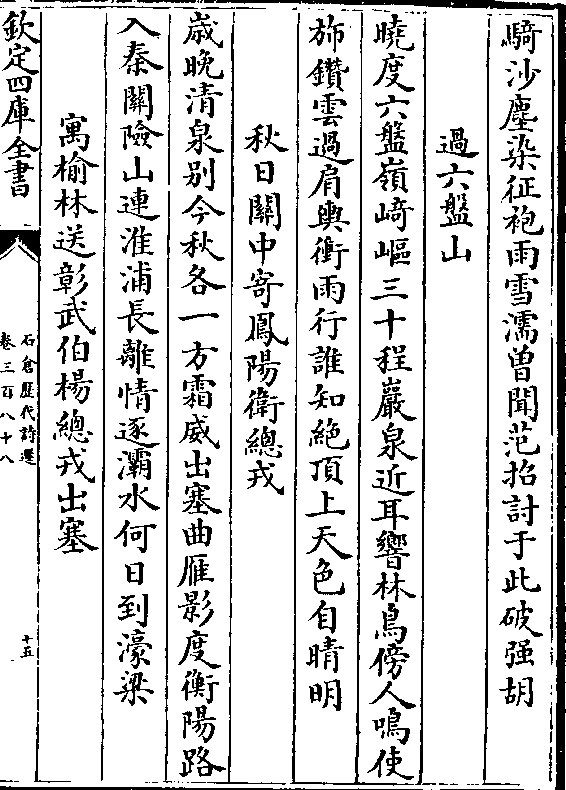 騎沙塵染征袍雨雪濡曽聞范招討于此破强胡
過六盤山
曉度六盤嶺﨑嶇三十程巖泉近耳響林鳥傍人鳴使
斾鑽雲過肩輿衝雨行誰知絶頂上天色自晴明
秋日關中寄鳳陽衛總戎
歳晩清泉别今秋各一方霜威出塞曲雁影度衡陽路
入秦關險山連淮浦長離情逐灞水何日到濠梁
寓榆林送彰武伯楊總戎出塞
欽定四庫全書
石倉歷代詩選
卷三百八十八
十五